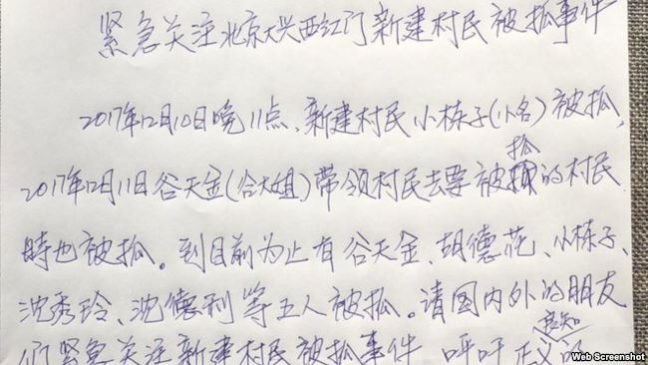 紧急关注北京大兴西红门新建村民被抓事件
2017年12月10日晚11点、新建村民小栋子(小名)被抓,
2017年12月11日谷天金(谷大姐)带领村民去要被抓的村民
時也被抓。到目前为止有谷天金、胡德花、小栋子、
沈秀玲、沈德利等五人被抓。请国内外的朋友
们紧急关注新建村民被抓事件 呼吁 正义
Web Screenshot